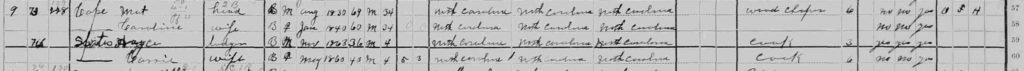 9 73 228 Cope Mat head B M Aug 1830 69 M 34 North Carolina North Carolina North Carolina wood choper 6 no no yes O F H 57
Caroline wife B F Jan 1840 60 M 34 North Carolina North Carolina North Carolina no no yes 58
B M Nov 1863 36 M 4 North Carolina North Carolina North Carolina cook 3 yes yes yes 59
Carrie wife B F May 1860 40 M 4 5 3 North Carolina North Carolina North Carolina cook 6 no no yes 60